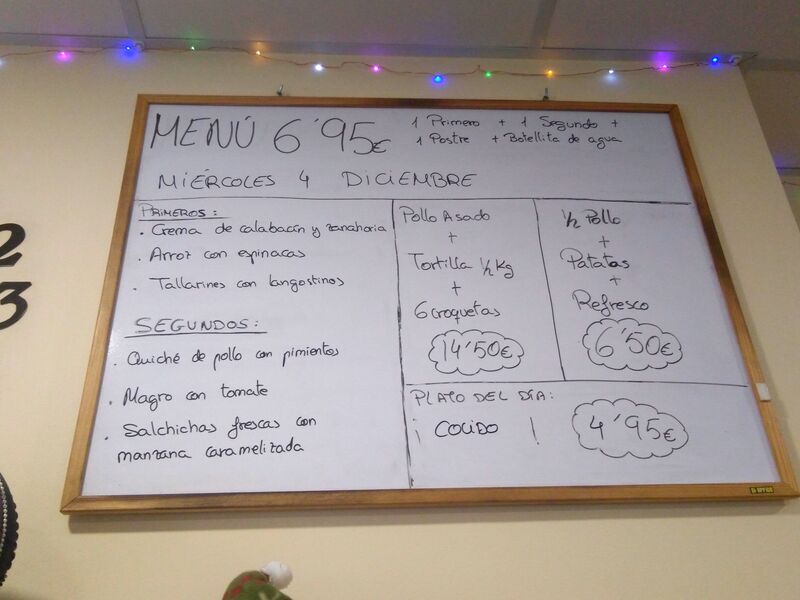 MENÚ 6'95€
1 Primero + 1 Segundo +
1 Postre + Botellita de agua
MIÉRCOLES 4 DICIEMBRE
PRIMEROS:
· Crema de calabacín y zanahoria
· Arroz con espinacas
· Tallarines con langostinos
SEGUNDOS:
· Quiché de pollo con pimientos
· Magro con tomate
· Salchichas frescas con
manzana caramelizada
Pollo Asado
+
Tortilla 1/2 Kg
+
6 croquetas
14'50€
1/2 Pollo
+
Patatas
+
Refresco
6'50€
PLATO DEL DÍA:
¡ COCIDO !
4'95€
2
3